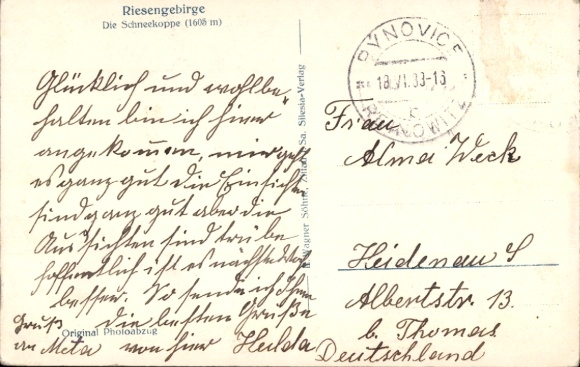 Riesengebirge
Die Schneekoppe (1605 m)
Glücklich und wohlbe-
halten bin ich hier
angekommen, mir geht
es ganz gut die Einsichten
sind ganz gut aber die
Aussichten sind trübe
hoffentlich ist es nächste
besser. So sende ich Ihnen
die besten Grüße
von hier Hulda
Gruß
an Meta
Original Photoabzug
Wagner Söhne, Zittau i. Sa. Silesia-Verlag
RÝNOVICE
18.VI.33-16
c
REINOWITZ
Frau
Alma Weck
Heidenau S
Albertstr. 13
b. Thomas
Deutschland